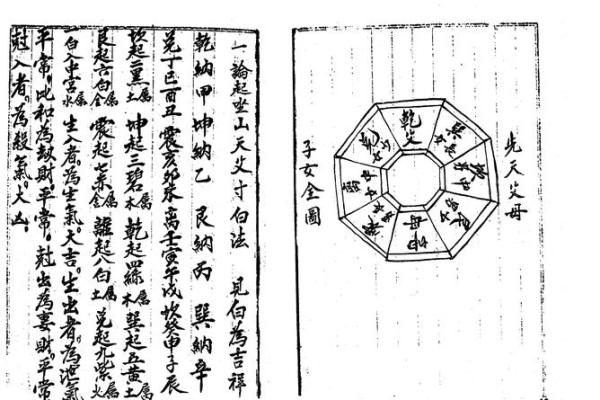 先天父母
乾父
巽長女
坎中男
艮少男
坤母
震長男
離中女
兌少女
子女全圖
一論起坐山天父寸白法 見白為吉祥
乾納甲 坤納乙 艮納丙 巽納辛
兌丁巳酉丑 震亥卯未 离壬寅午戌 坎癸申子辰
坎起二黑屬土 坤起三碧屬木 乾起四綠屬木 巽起五黄屬土
艮起六白屬金 震起七赤屬金 離起八白屬土 兌起九紫屬火
一白入中宮屬水 生入者。為生氣。大吉。生出者。為洩氣
平常。比和為劫財。平常。尅出為妻財。平常
尅入者。為殺氣。大凶。